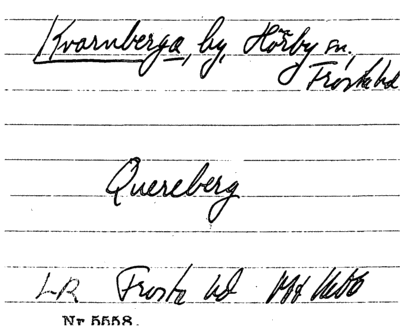 Kvarnberga, by, Hörby sn,
Frosta hd
Quereberg
LR Frosta hd
Nr 5558.